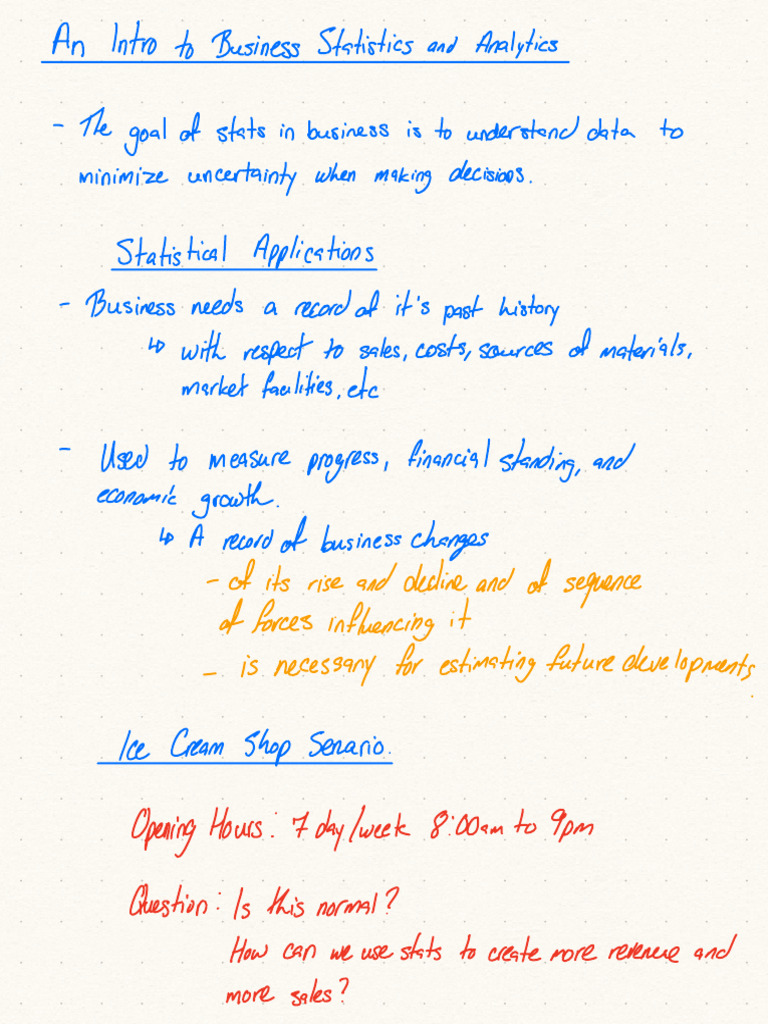 An Intro to Business Statistics and Analytics
- The goal of stats in business is to understand data to
minimize uncertainty when making decisions.
Statistical Applications
- Business needs a record of it's past history
↳ with respect to sales, costs, sources of materials,
market facilities, etc
- Used to measure progress, financial standing, and
economic growth.
↳ A record of business changes
- of its rise and decline and of sequence
of forces influencing it
- is necessary for estimating future developments.
Ice Cream Shop Senario.
Opening Hours: 7 day/week 8:00am to 9pm
Question: Is this normal?
How can we use stats to create more revenue and
more sales?